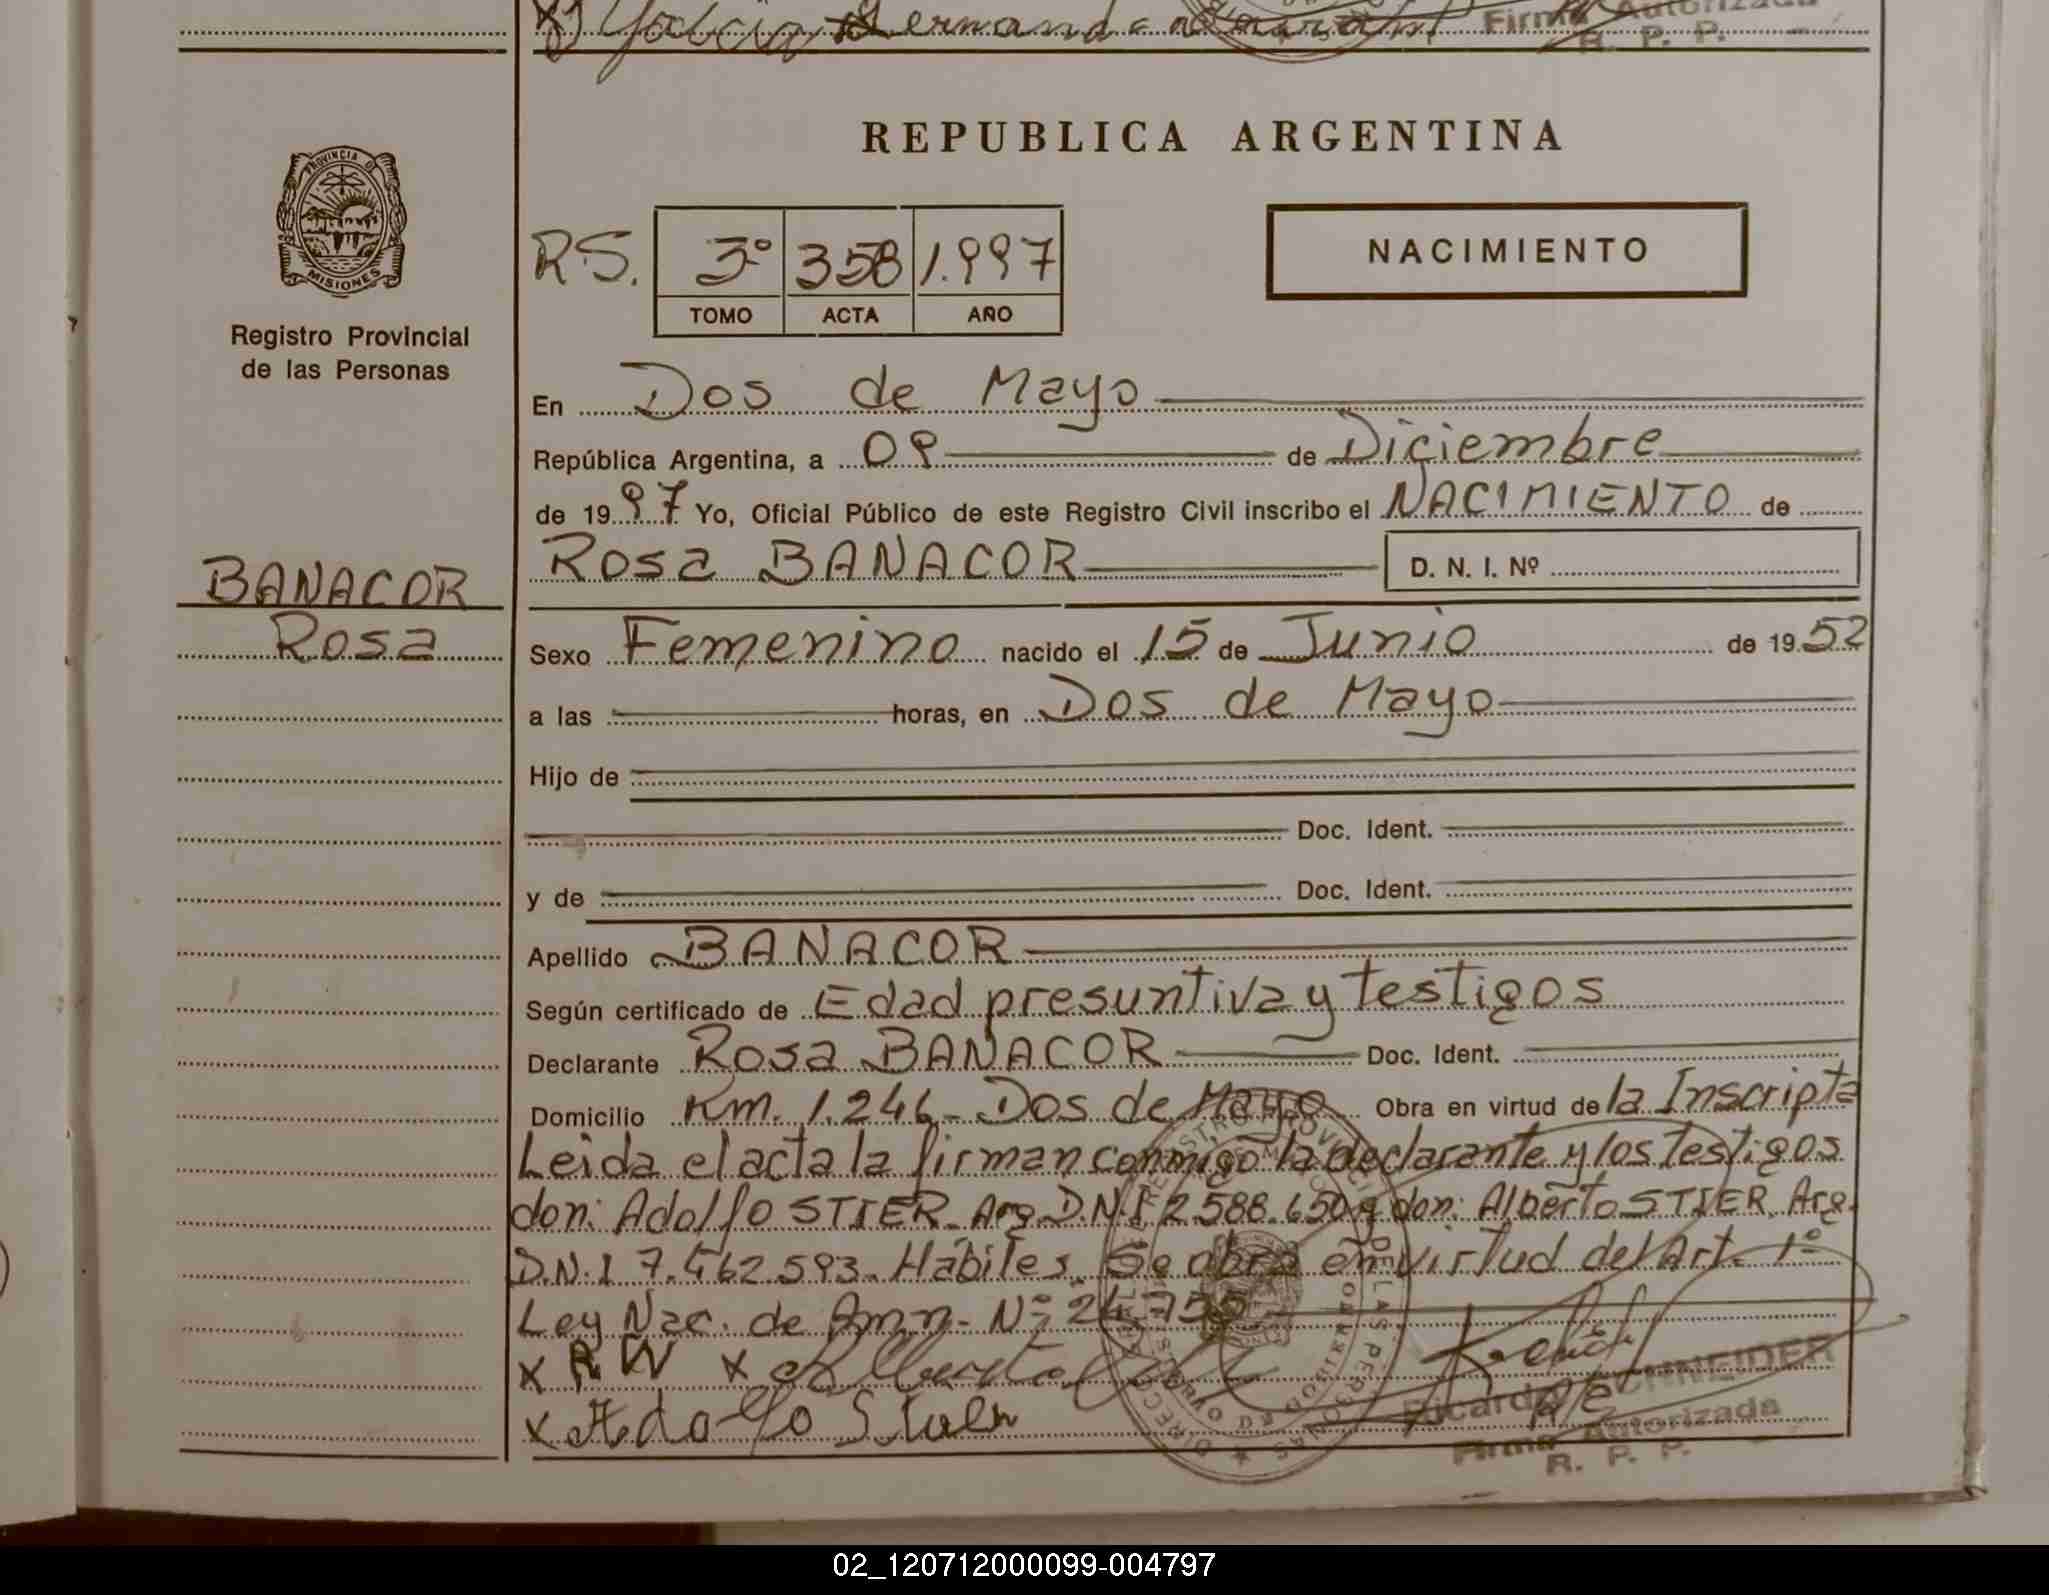 Firma Autorizada
R. P. P.
REPUBLICA ARGENTINA
PROVINCIA D
MISIONES
Registro Provincial
de las Personas
R.S. 3º 358 1.997
TOMO ACTA AÑO
NACIMIENTO
En Dos de Mayo
República Argentina, a 09 de Diciembre
de 1997 Yo, Oficial Público de este Registro Civil inscribo el NACIMIENTO de
Rosa BANACOR D. N. I. Nº
BANACOR
Rosa
Sexo Femenino nacido el 15 de Junio de 1952
a las horas, en Dos de Mayo
Hijo de
Doc. Ident.
y de Doc. Ident.
Apellido BANACOR
Según certificado de Edad presuntiva y testigos
Declarante Rosa BANACOR Doc. Ident.
Domicilio Km. 1.246- Dos de Mayo Obra en virtud de la Inscripta
Leida el acta la firman conmigo la declarante y los testigos
don: Adolfo STIER. Arg. D.N.I 2.588.650 y don: Alberto STIER. Arg.
D.N.I 7.462.593. Hábiles. Se obra en virtud del Art. 1º
Ley Nac. de Amn. Nº 24.755
x R W x Alberto
x Adolfo
Ricardo SCHNEIDER
Firma Autorizada
R. P. P.
02_120712000099-004797